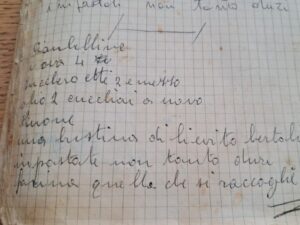 impastati non tanto duri
Ciambelline
uova 4
zucchero etti 2 e mezzo
olio 2 cucchiai a uovo
limone
una bustina di lievito bertolini
impastate non tanto duri
farina quella che si raccoglie